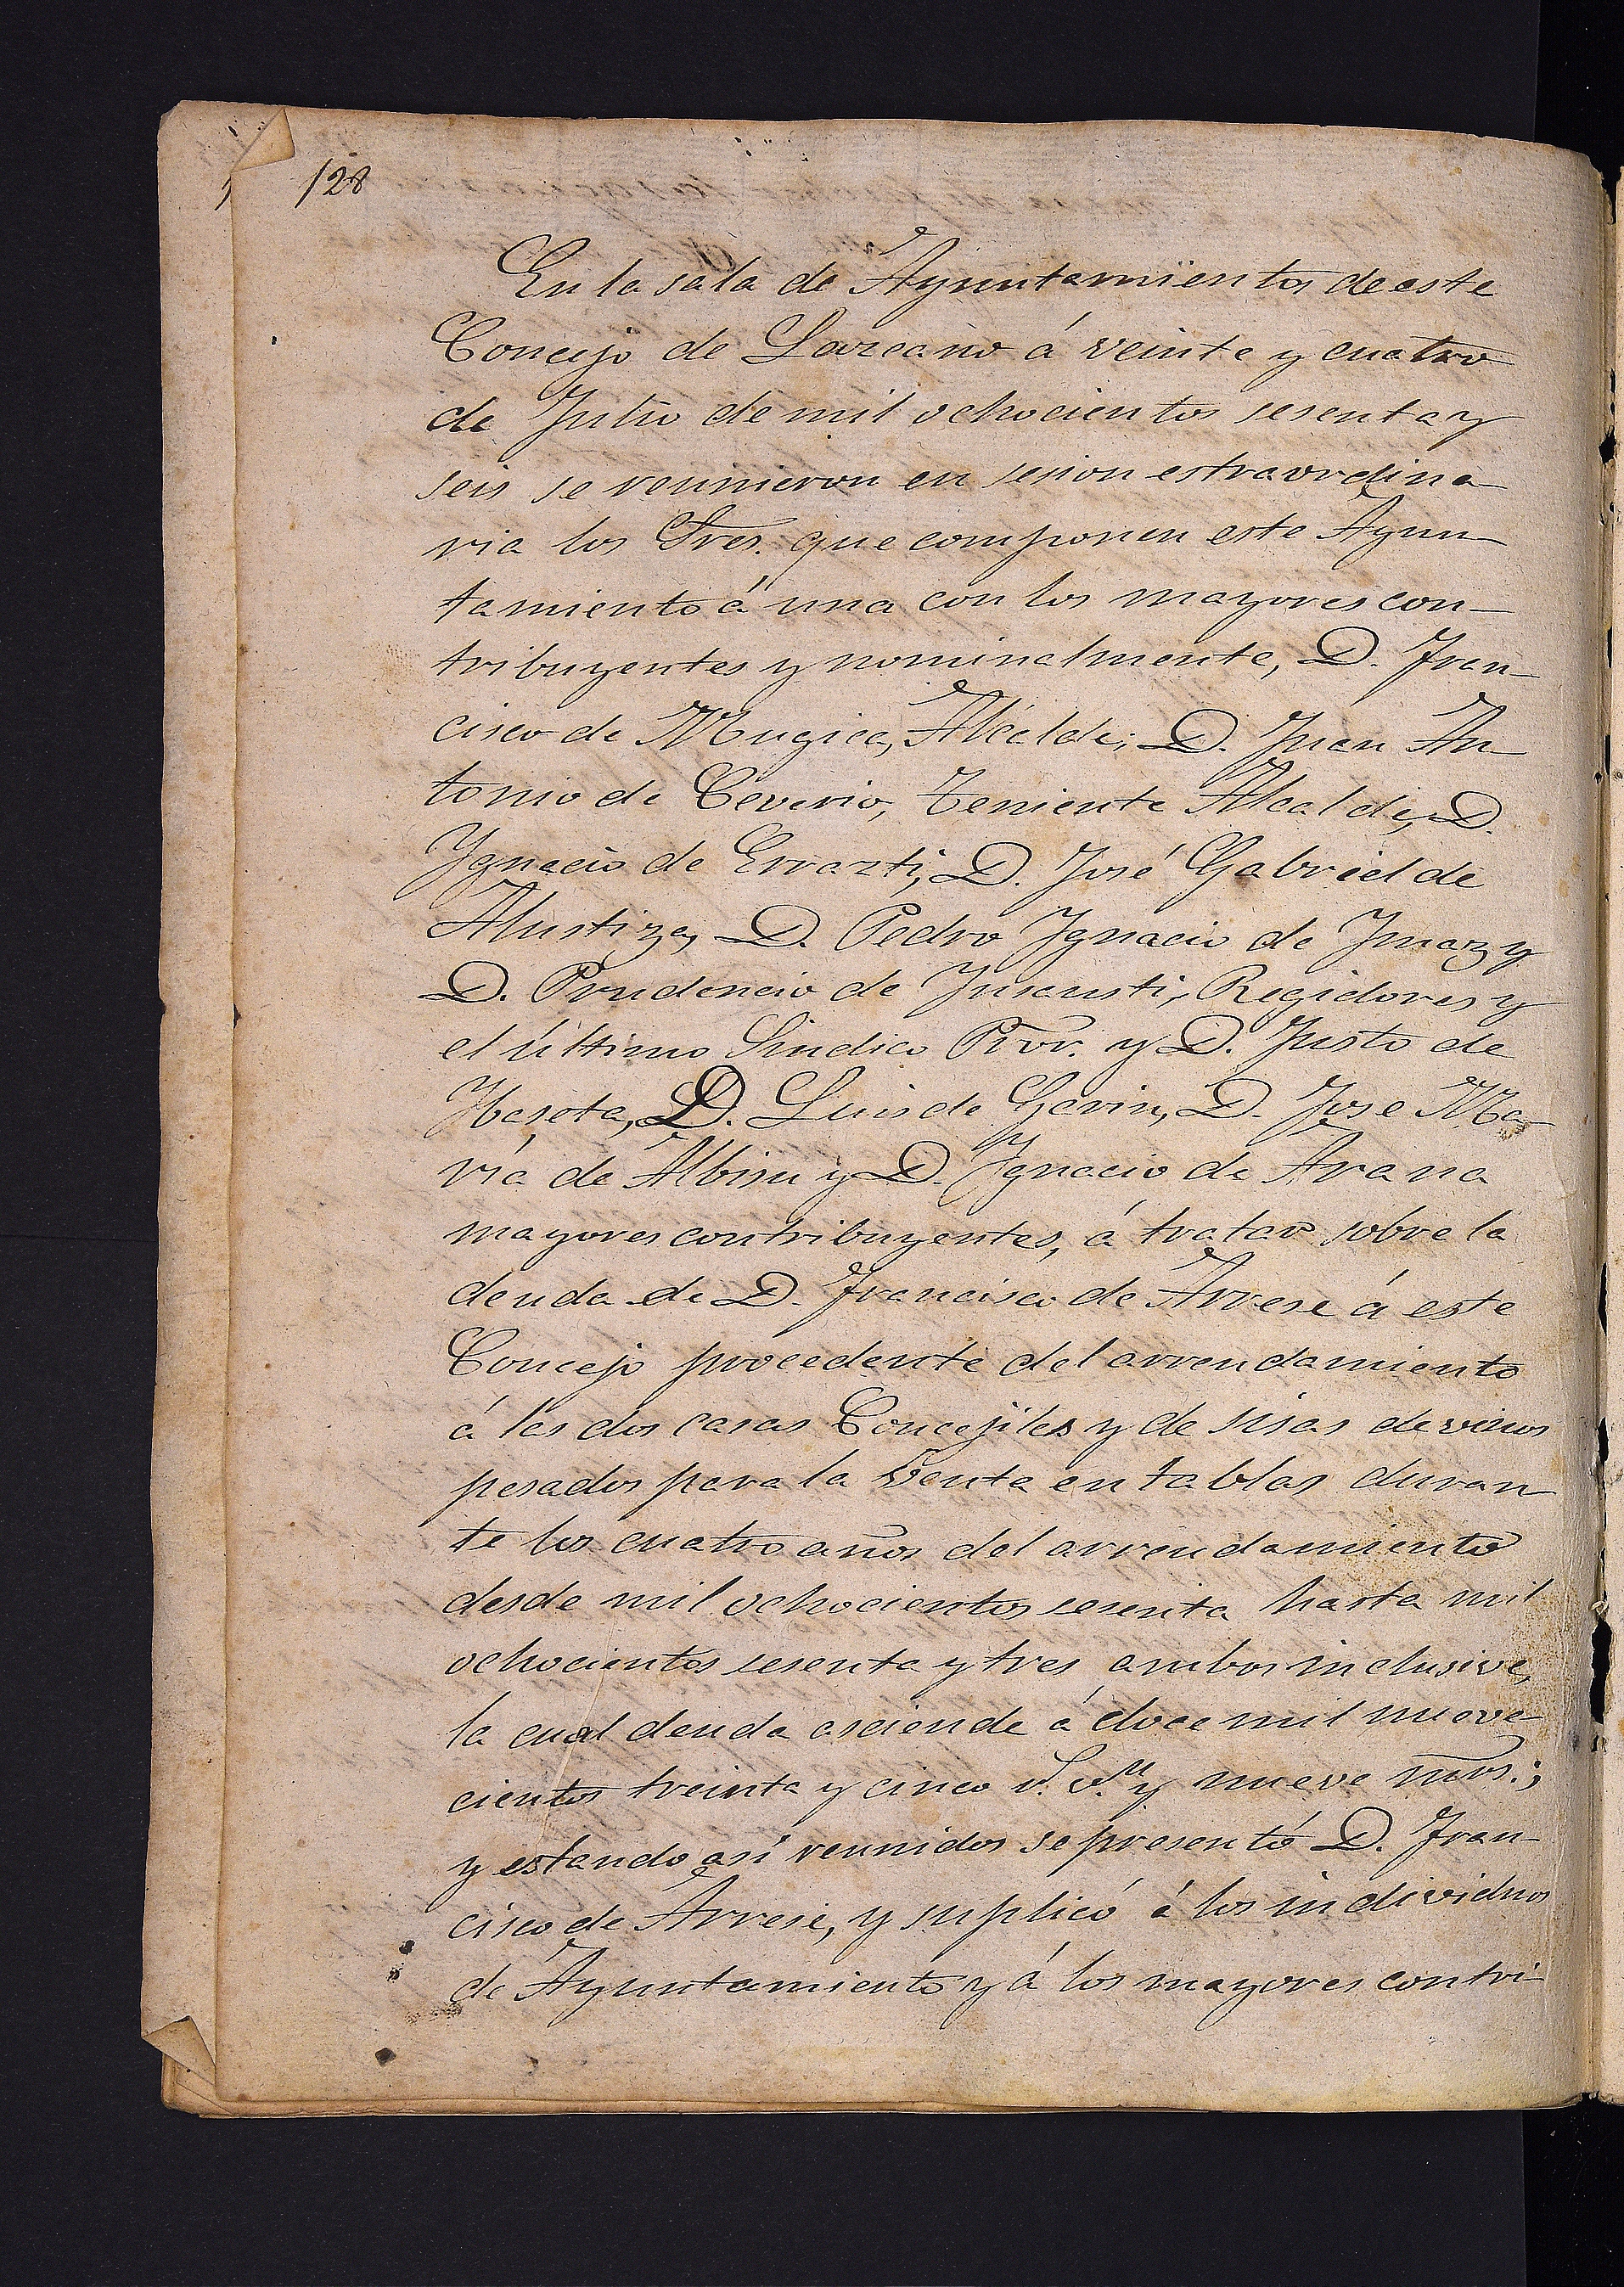 128
En la sala de Ayuntamiento de este
Concejo de Lazcano á veinte y cuatro
de Julio de mil ochocientos sesenta y
seis se reunieron en sesion estraordina
ria los Sres. que componen este Ayun
tamiento á una con los mayores con-
tribuyentes y nominalmente, D. Fran-
cisco de Mugica, Alcalde; D. Juan An-
tonio de Ceverio, Teniente Alcalde, D.
Ygnacio de Errazti, D. José Gabriel de
Alustiza, D. Pedro Ygnacio de Ymaz y
D. Prudencio de Ynsausti, Regidores y
el último Sindico Pror. y D. Justo de
D. Luis de Gavin, D. Jose Ma-
ria de Albisu y D. Ygnacio de Arana
mayores contribuyentes, á tratar sobre la
deuda de D. Francisco de Arrese á este
Concejo procedente del arrendamiento
á las dos casas Concejiles y de sisas de vinos
pesados para la venta en tablas duran
te los cuatro años del arrendamiento
desde mil ochocientos sesenta hasta mil
ochocientos sesenta y tres ambos inclusive,
la cual deuda asciende á doce mil nueve-
cientos treinta y cinco r.s v.n y nueve mrs.;
y estando así reunidos se presentó D. Fran-
cisco de Arrese, y suplicó á los individuos
de Ayuntamiento y á los mayores contri-